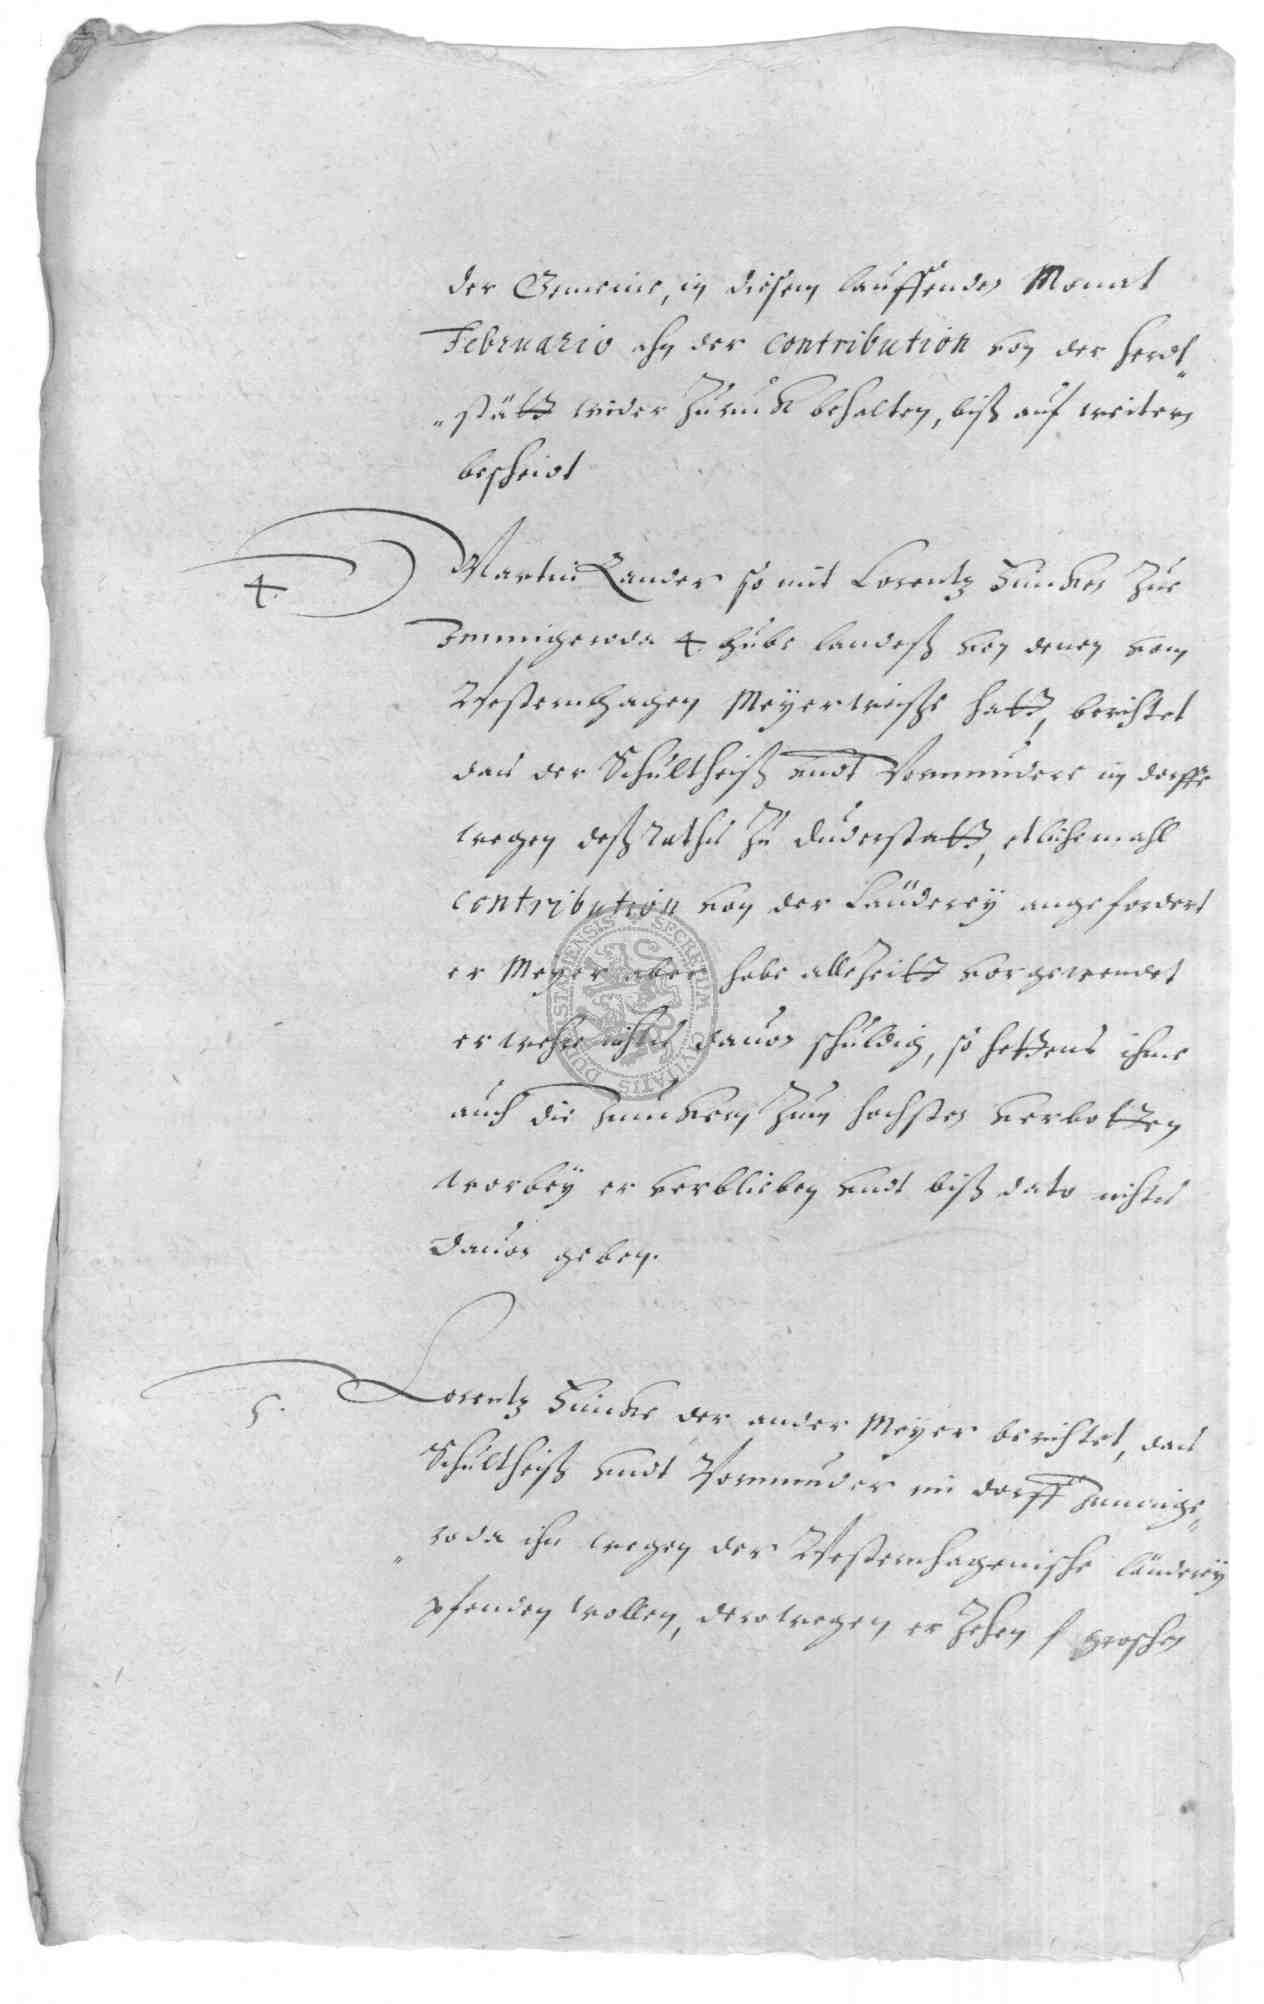 der Gemeine, in diesem lauffenden Monat
Februario ahn der contribution von der herdt-
-stätt wider zuruck behalten, biß auf weitern
bescheidt
4. Martin Zander so mit Lorentz Huncken zue
Immigeroda 4. hube landeß von denen vom
Westernhagen Meyerweise hatt, berichtet
das der Schultheiß undt Vormundere im dorffe
wegen deß Raths zu Duderstatt, etlichemahl
contribution von der Länderey angefordert
er Meyer aber habe allezeitt vorgewendet
er wehre nichts davon schuldig, so hettens ihme
auch die Junckern zum hochsten verbotten
worbey er verblieben undt biß dato nichts
davon geben.
5. Lorentz Huncke der ander Meyer berichtet, das
Schultheiß undt Vormunder im dorff Immige-
-roda ihn wegen der Westernhagenische länderey
pfenden wollen, derowegen er Zehen groschen
SECRETUM CIVITATIS